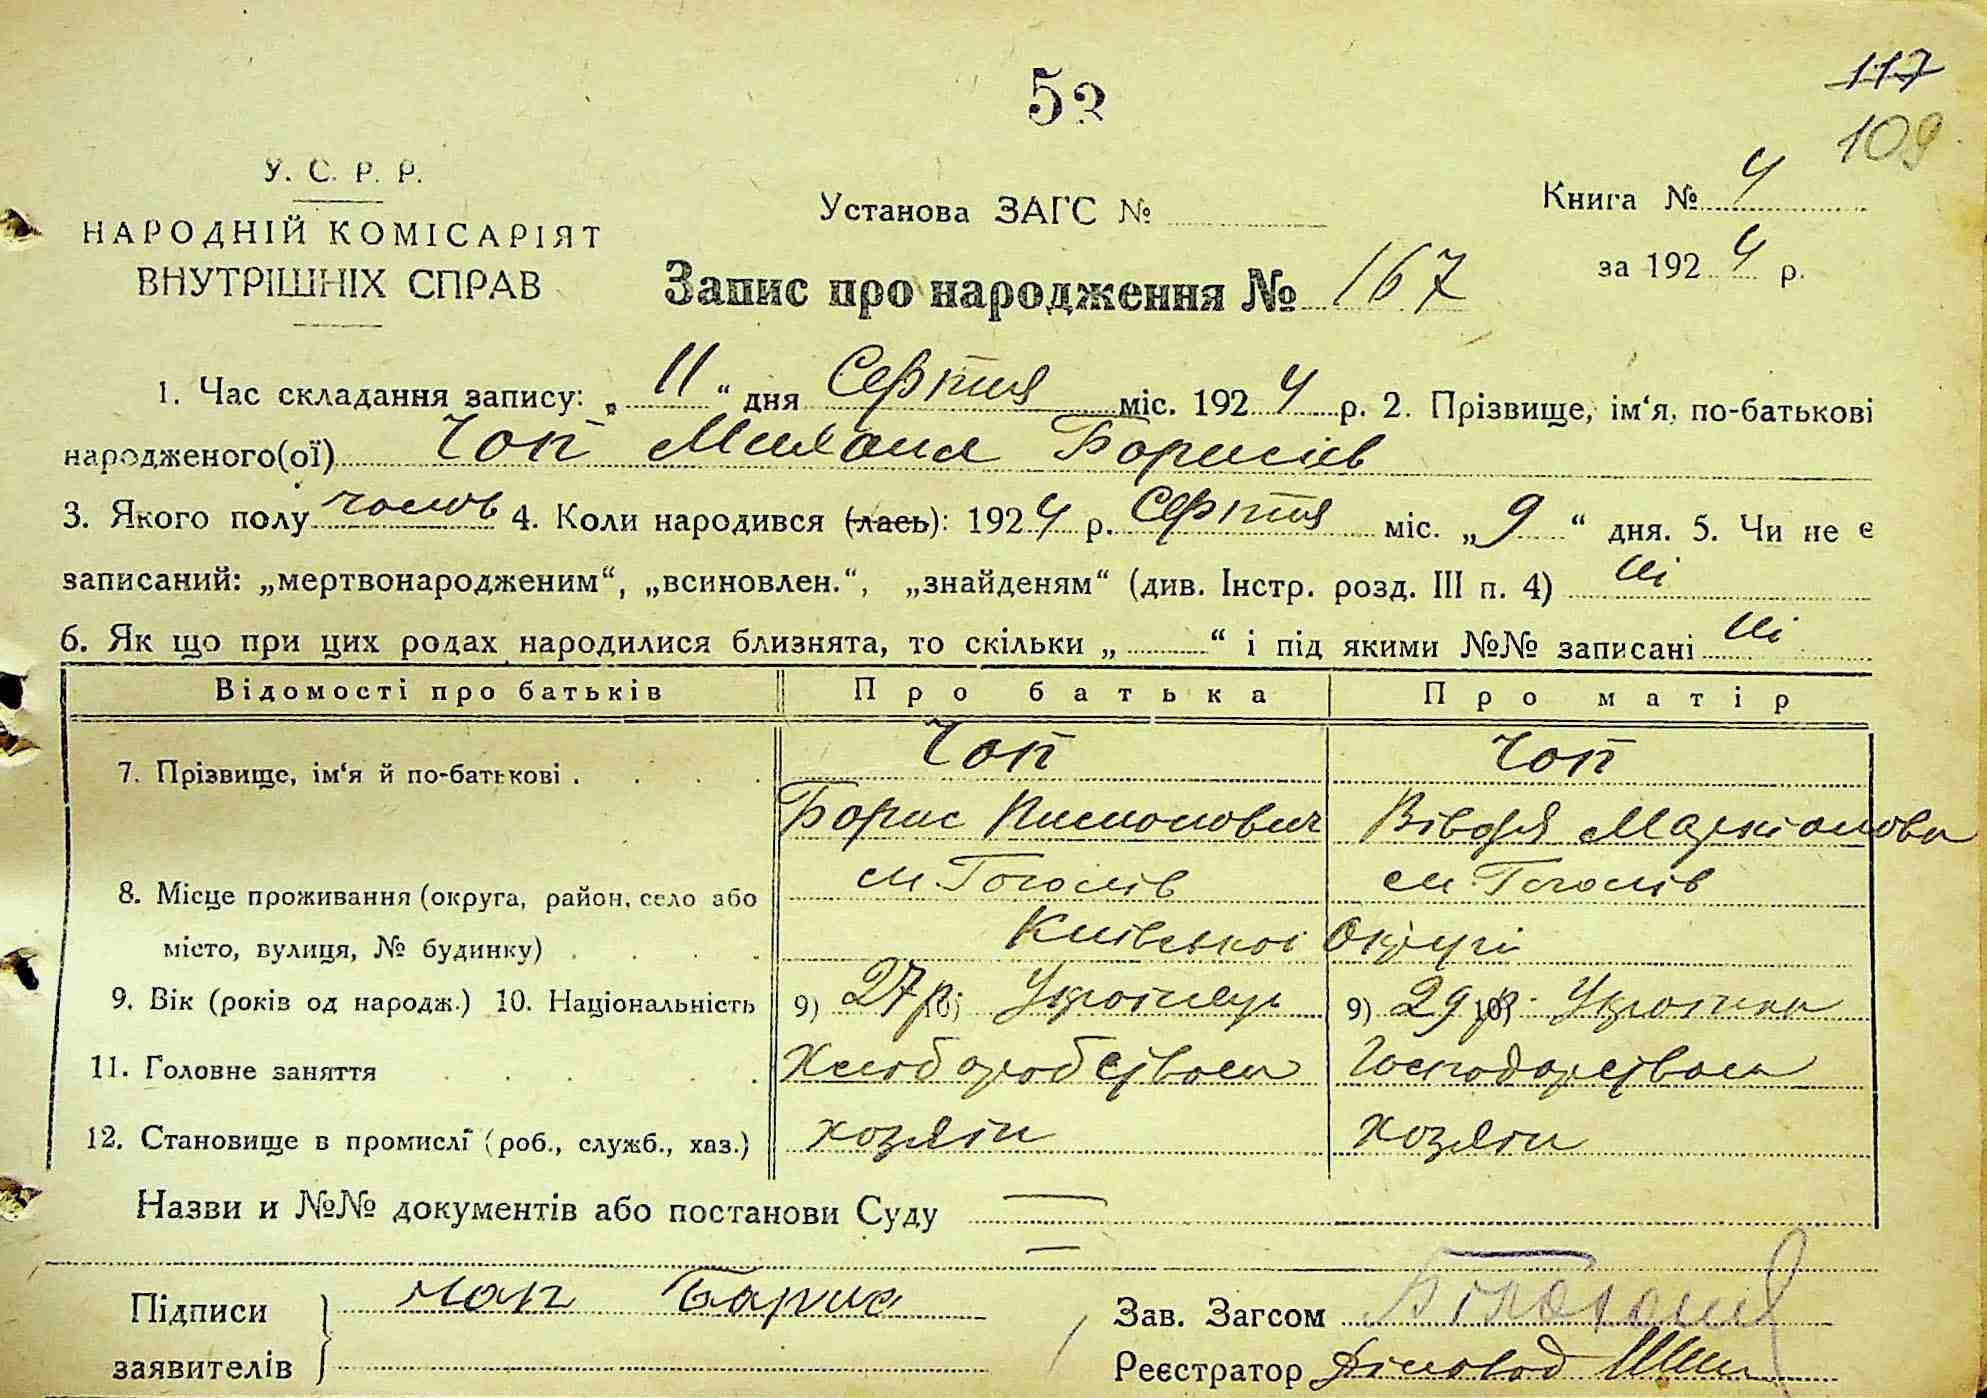 117
53
109
У. С. Р. Р.
НАРОДНІЙ КОМІСАРІЯТ
ВНУТРІШНІХ СПРАВ
Установа ЗАГС №
Книга № 4
за 1924 р.
Запис про народження № 167
1. Час складання запису: „11“ дня Серпня міс. 1924 р. 2. Прізвище, ім‘я, по-батькові
народженого(ої) Чоп Михаил Борисів
3. Якого полу чолов 4. Коли народився (лась): 1924 р. Серпня міс. „9“ дня. 5. Чи не є
записаний: „мертвонародженим“, „всиновлен.“, „знайденям“ (див. Інстр. розд. III п. 4) ні
6. Як що при цих родах народилися близнята, то скільки „ “ і під якими №№ записані ні
Відомості про батьків Про батька Про матір
7. Прізвище, ім‘я й по-батькові . Чоп Чоп
Борис Пимонович Маркіанова
8. Місце проживання (округа, район, село або м. Гоголів м. Гоголів
місто, вулиця, № будинку) . Київської Округи
9. Вік (років од народж.) 10. Національність 9) 27 р. 10) Українець 9) 29 р. 10) Українка
11. Головне заняття Хлібороб Господарством
12. Становище в промислі (роб., служб., хаз.) хозяїн хозяїн
Назви и №№ документів або постанови Суду —
Підписи Чоп Борис Зав. Загсом
заявителів Реєстратор Діловод